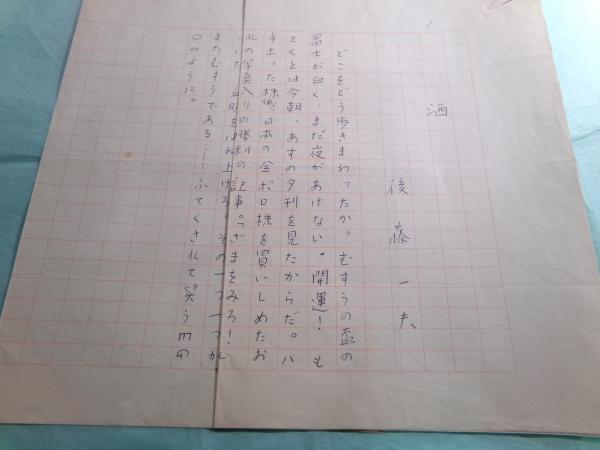 酒
後藤一夫
どこをどう歩きまわったか。むすうの盃の
富士が白く、まだ夜があけない。開運! も
ともとは今朝、あすの夕刊を見たからだ。ハ
ネ上った株価、日本の全ボロ株を買いしめたお
れの写真入りの勝利の記事。ざまをみろ!
上げる。その一つ一つが
またむすうである……ふてくされて笑う
のように。